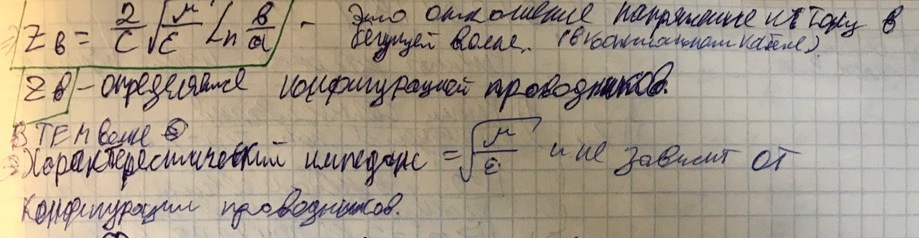 Zв = 2/c √(μ/ε) Ln в/a - Это отношение напряжение к току в
бегущей волне. (в коаксиальном кабеле)
Zв - определяется конфигурацией проводников.
В ТЕМ волне
Характеристический импеданс = √(μ/ε) и не зависит от
конфигурации проводников.